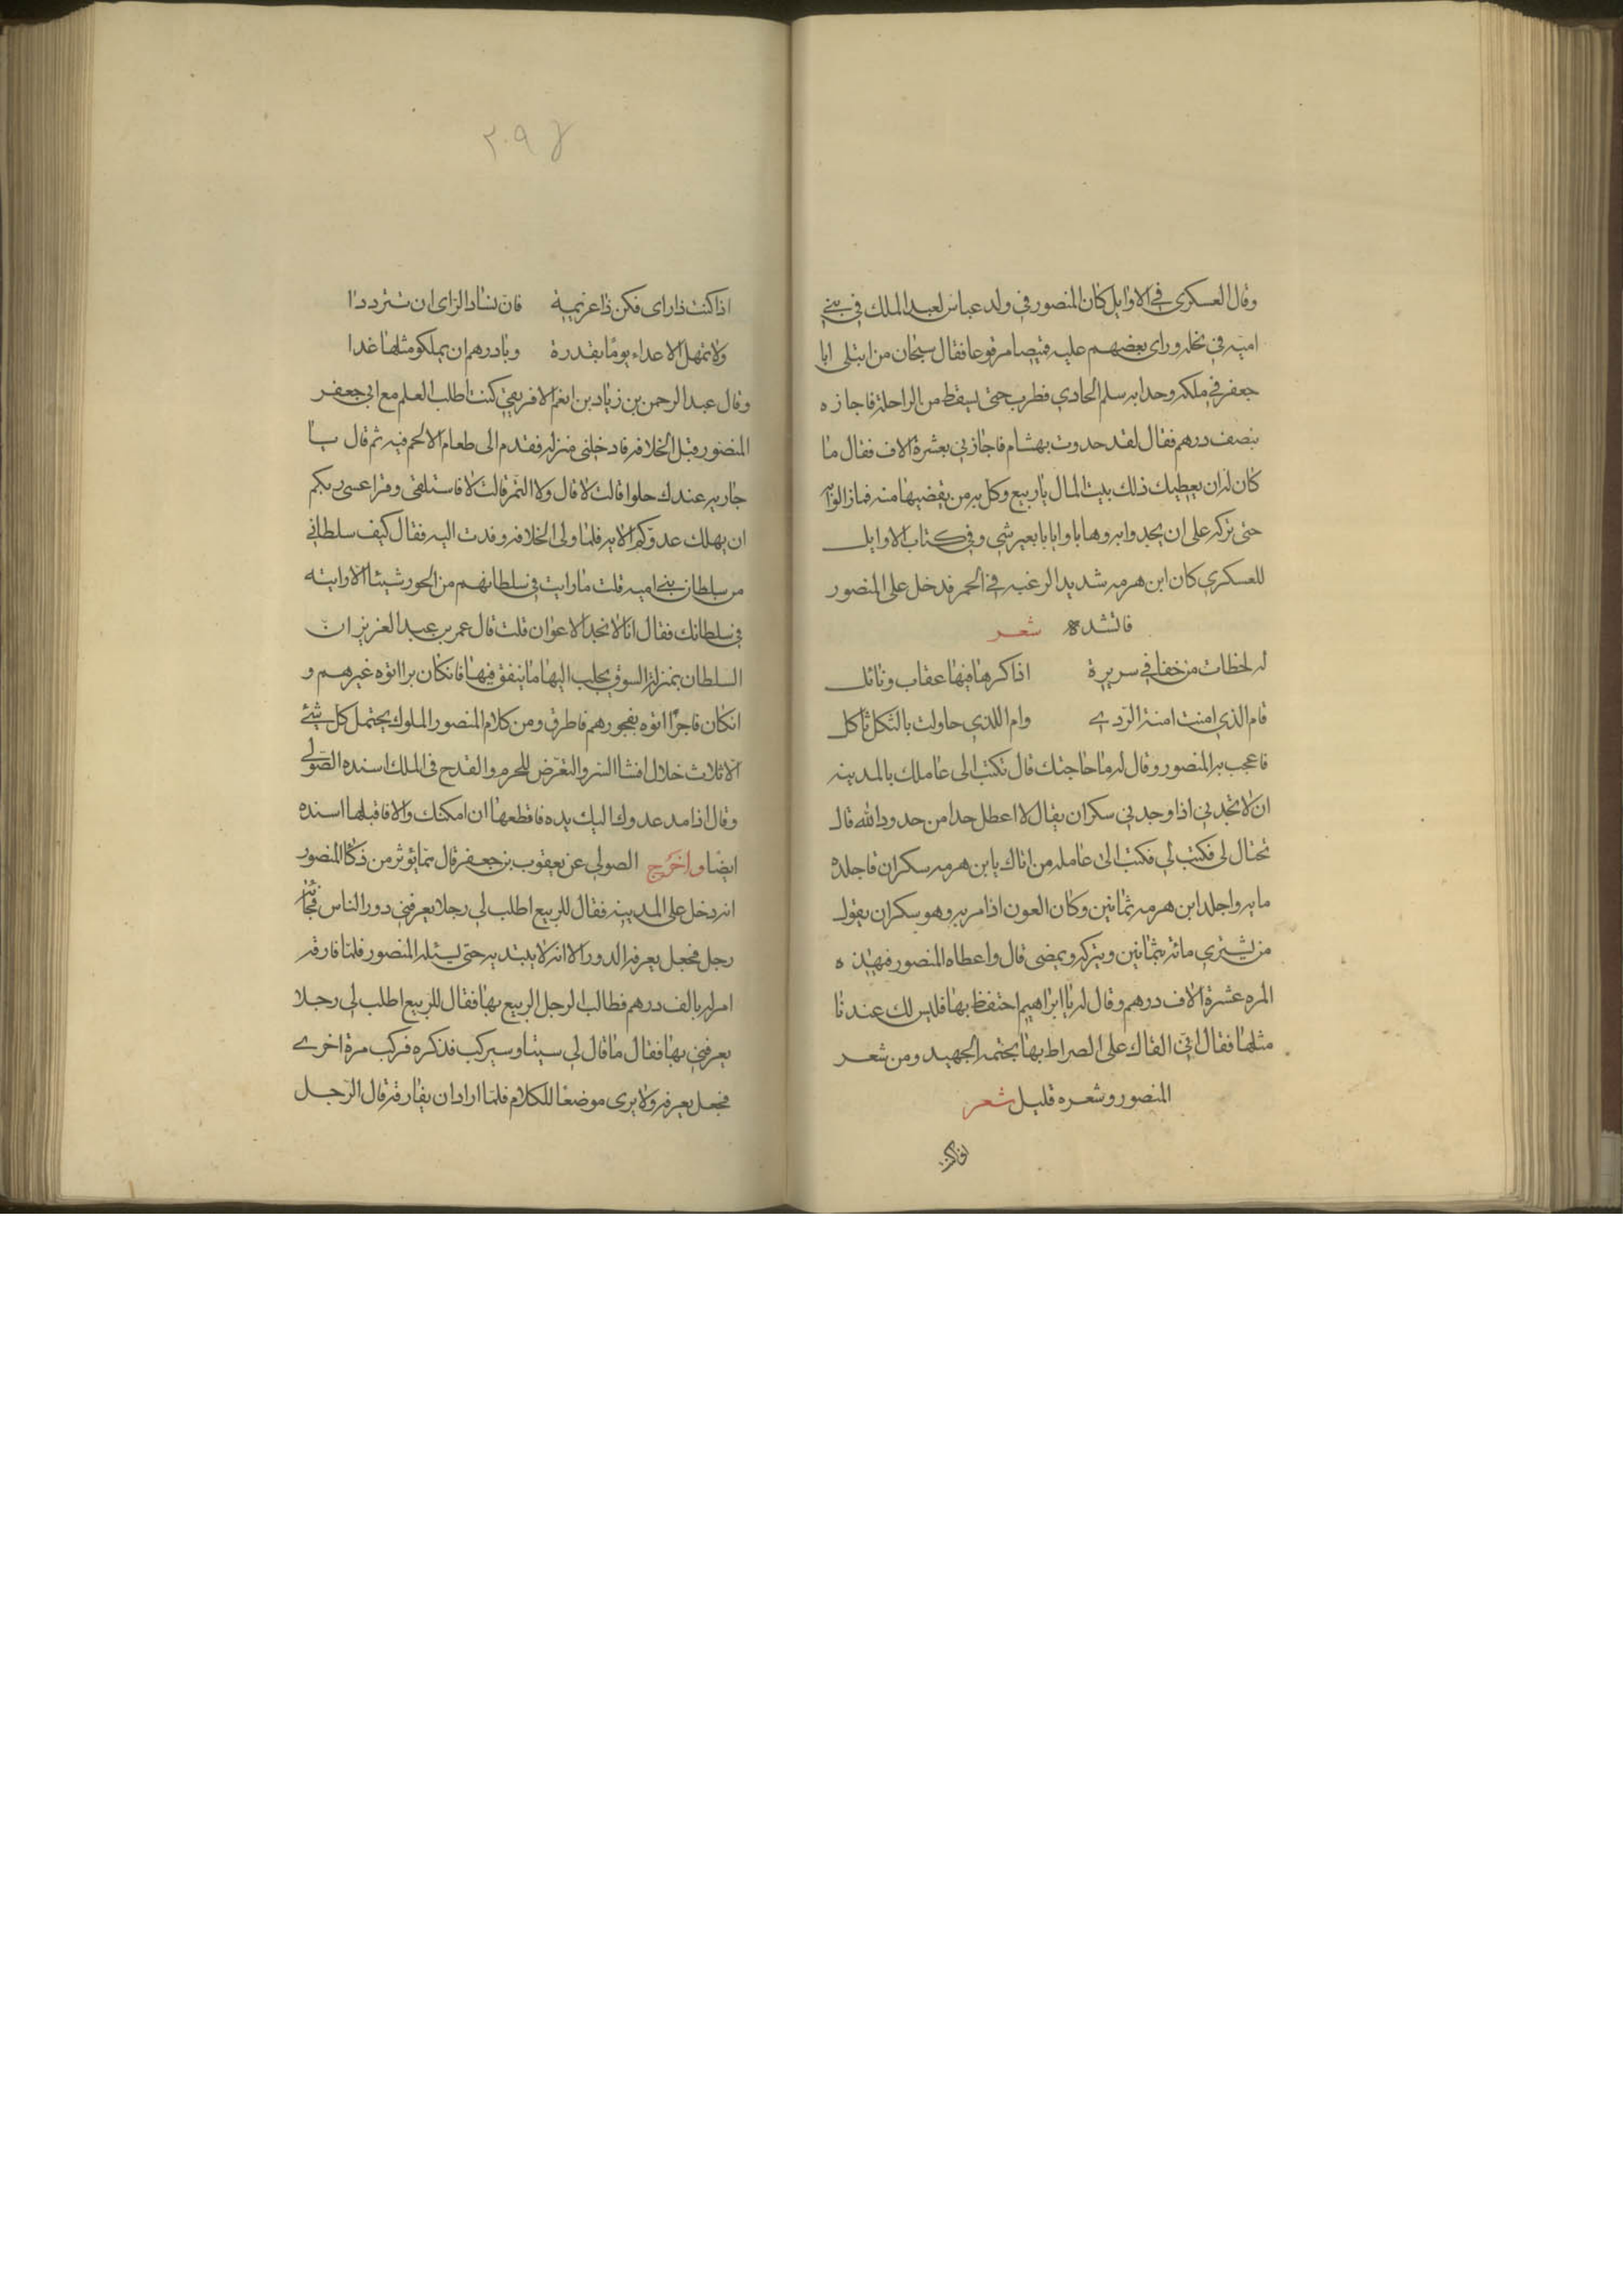 وقال العسكري في الاوايل كان المنصور في ولد عباس لعبد الملك في بني
اميه في بخله وراى بعضهم عليه قميصا مرقوعا فقال سبحان من ابتلى ابا
جعفر في ملكه وحدا به سلم الحادي فطرب حتى ليسقط من الراحلة فاجازه
بنصف درهم فقال لقد حدوت بهشام فاجازني بعشرة الاف فقال ما
كان له ان يعطيك ذلك بيت المال يا ربيع وكل به من يقضيها منه فما زالوا به
حتى تركه على ان يحدوا به وهابا وايابا بعير شي وفي كتاب الاوايل
للعسكري كان ابن هرمه شديد الرغبه في الخمر فدخل على المنصور
فانشده شعر
له لحظات من خفا في سريرة اذا كرها فيها عقاب ونائل
فام الذي امنت امنة الردي وام اللذي حاولت بالثكل ثاكل
فاعجب به المنصور وقال له ما حاجتك قال تكتب الى عاملك بالمدينه
ان لا تحدني اذا وجدني سكران يقال لا اعطل حدا من حدود الله قال
تحتال لي فكتب لي فكتب الى عامله من اتاك يا بن هرمه سكران فاجلده
مايه واجلد ابن هرمه ثمانين وكان العون اذا مر به وهو سكران يقول
من يشتري مائة بثمانين ويتركه ويمضى قال واعطاه المنصور فهيذه
المره عشرة الاف درهم وقال له يا ابراهيم احتفظ بها فليس لك عندنا
مثلها فقال اني القاك على الصراط بها بختمه الجهبد ومن شعر
المنصور وشعره قليل شعر
٢٠٩
اذا كنت ذا راى فكن ذا عزيمة فان فساد الراى ان تترددا
ولا تمهل الاعداء يوما بقدرة وبادرهم ان يملكو مثلها غدا
وقال عبد الرحمن بن زياد بن انعم الافريقي كنت اطلب العلم مع ابي جعفر
المنصور قبل الخلافه فادخلنى منزله فقدم الى طعام الا لحم فيه ثم قال يا
جاريه عندك حلوا قالت لا قال ولا التمر قالت لا فاستلقى وقرا عسى ربكم
ان يهلك عدوكم الايه فلما ولى الخلافه وفدت اليه فقال كيف سلطاني
من سلطان بني اميه قلت ما رايت في سلطانهم من الجور شيئا الا رايته
في سلطانك فقال انا لا نجد الاعوان قلت قال عمر بن عبد العزيز ان
السلطان بمنزلة السوق يجلب اليها ما ينفق فيها فان كان برا اتوه غيرهم و
ان كان فاجرا اتوه بفجورهم فاطرق ومن كلام المنصور الملوك يحتمل كل شيئ
الا ثلاث خلال افشا السر والتعرض للحرم والقدح في الملك اسنده الصولي
وقال اذا مد عدوك اليك يده فاقطعها ان امكنك والا فاقبلها اسنده
ايضا واخرج الصولي عن يعقوب بن جعفر قال مما يوثر من ذكا المنصور
انه دخل على المدينه فقال للربيع اطلب لي رجلا يعرفني دور الناس فجائه
رجل فجعل يعرفه الدور الا انه لا يبتديه حتى ليسئله المنصور فلما فارقه
امر له بالف درهم فطالب الرجل الربيع بها فقال للربيع اطلب لي رجلا
يعرفني بها فقال ما قال لي سيئا وسيركب فذكره فركب مرة اخرى
فجعل يعرفه ولا يرى موضعا للكلام فلما اراد ان يفارقه قال الرجل